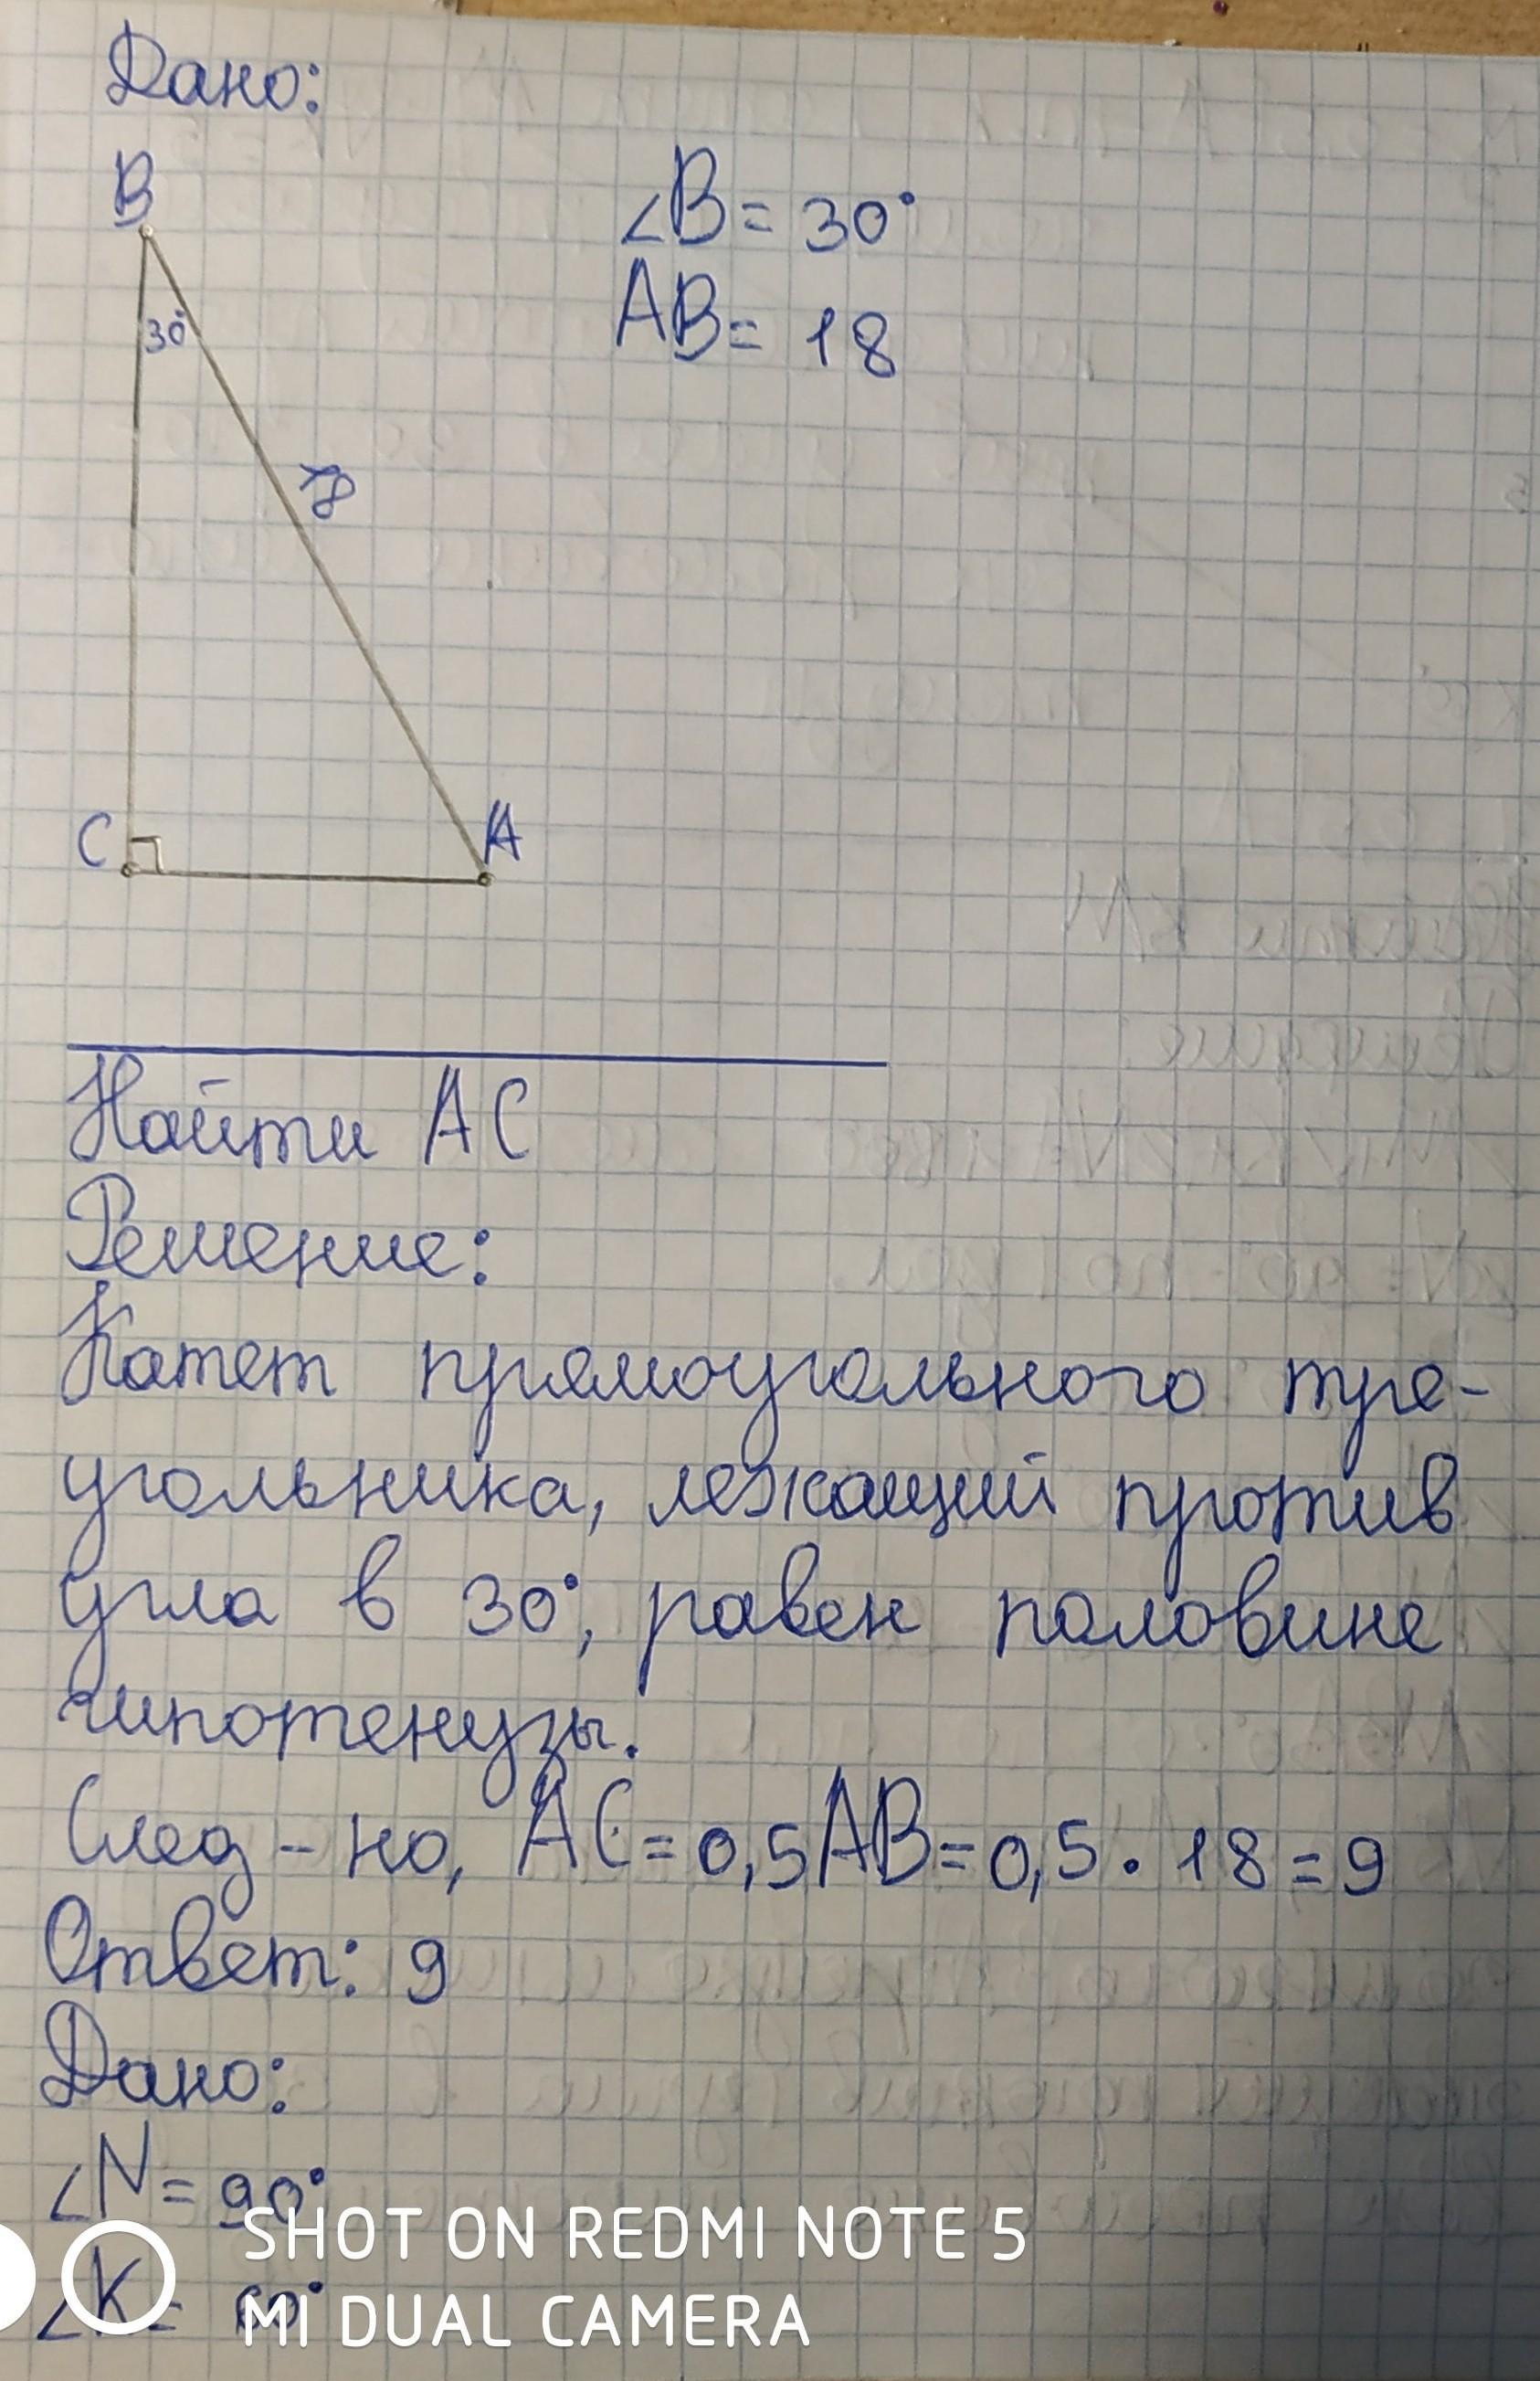 Дано:
B
∠B = 30°
AB = 18
30°
18
C
A
Найти AC
Решение:
Катет прямоугольного тре-
угольника, лежащий против
угла в 30°, равен половине
гипотенузы.
След-но, AC = 0,5AB = 0,5 · 18 = 9
Ответ: 9
Дано:
∠N = 90°
SHOT ON REDMI NOTE 5
∠K = 60°
MI DUAL CAMERA